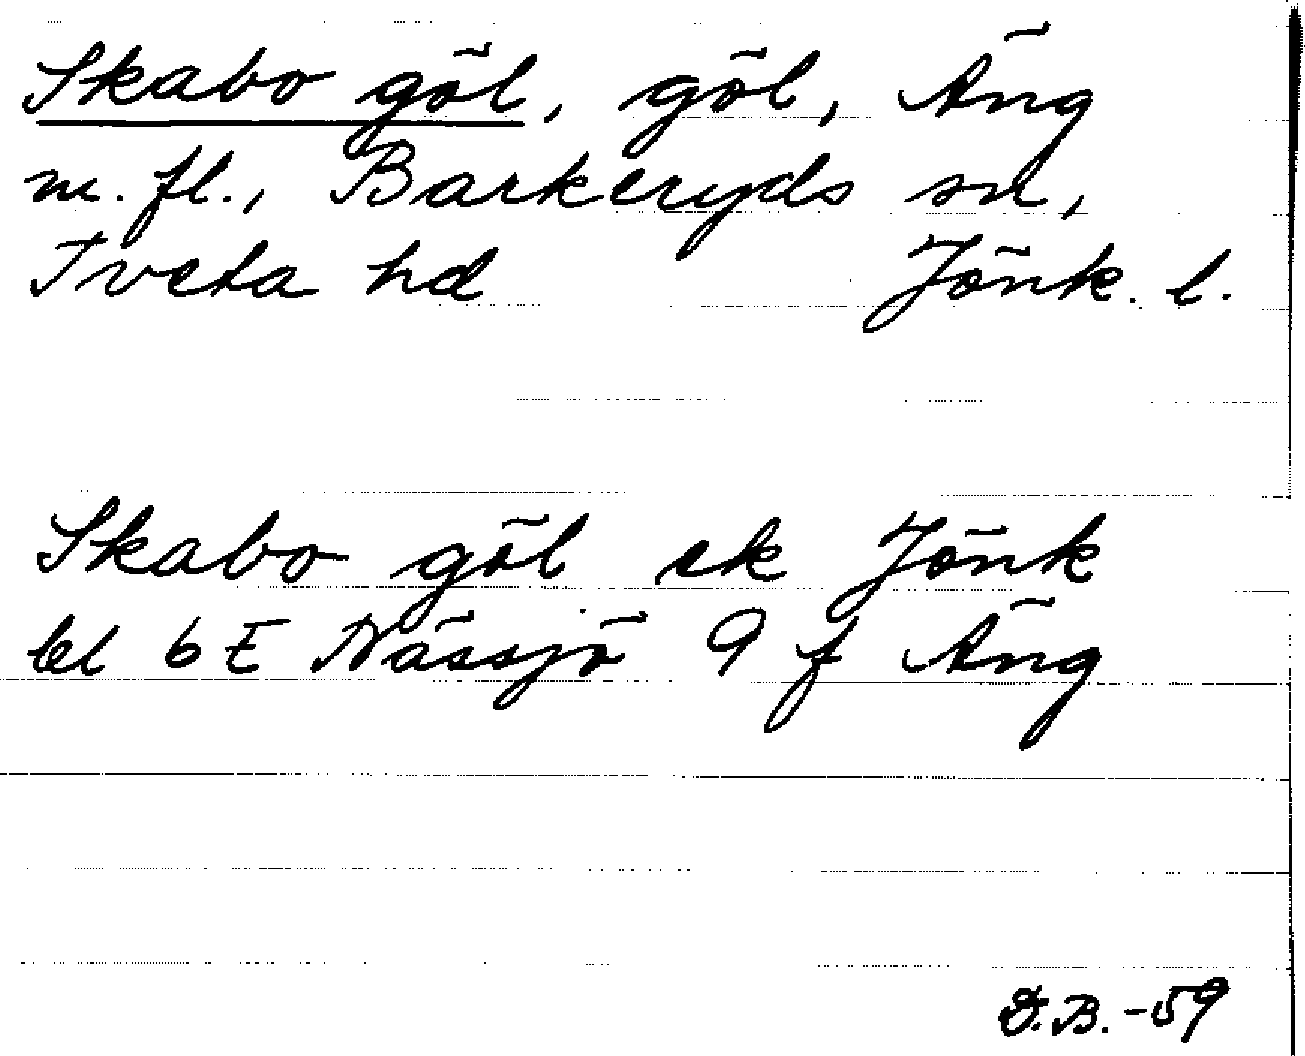 Skabo göl, göl, Äng
m. fl., Barkeryds sn,
Tveta hd Jönk. l.
Skabo göl ek Jönk
bl 6E Nässjö 9 f Äng
D.B. -59